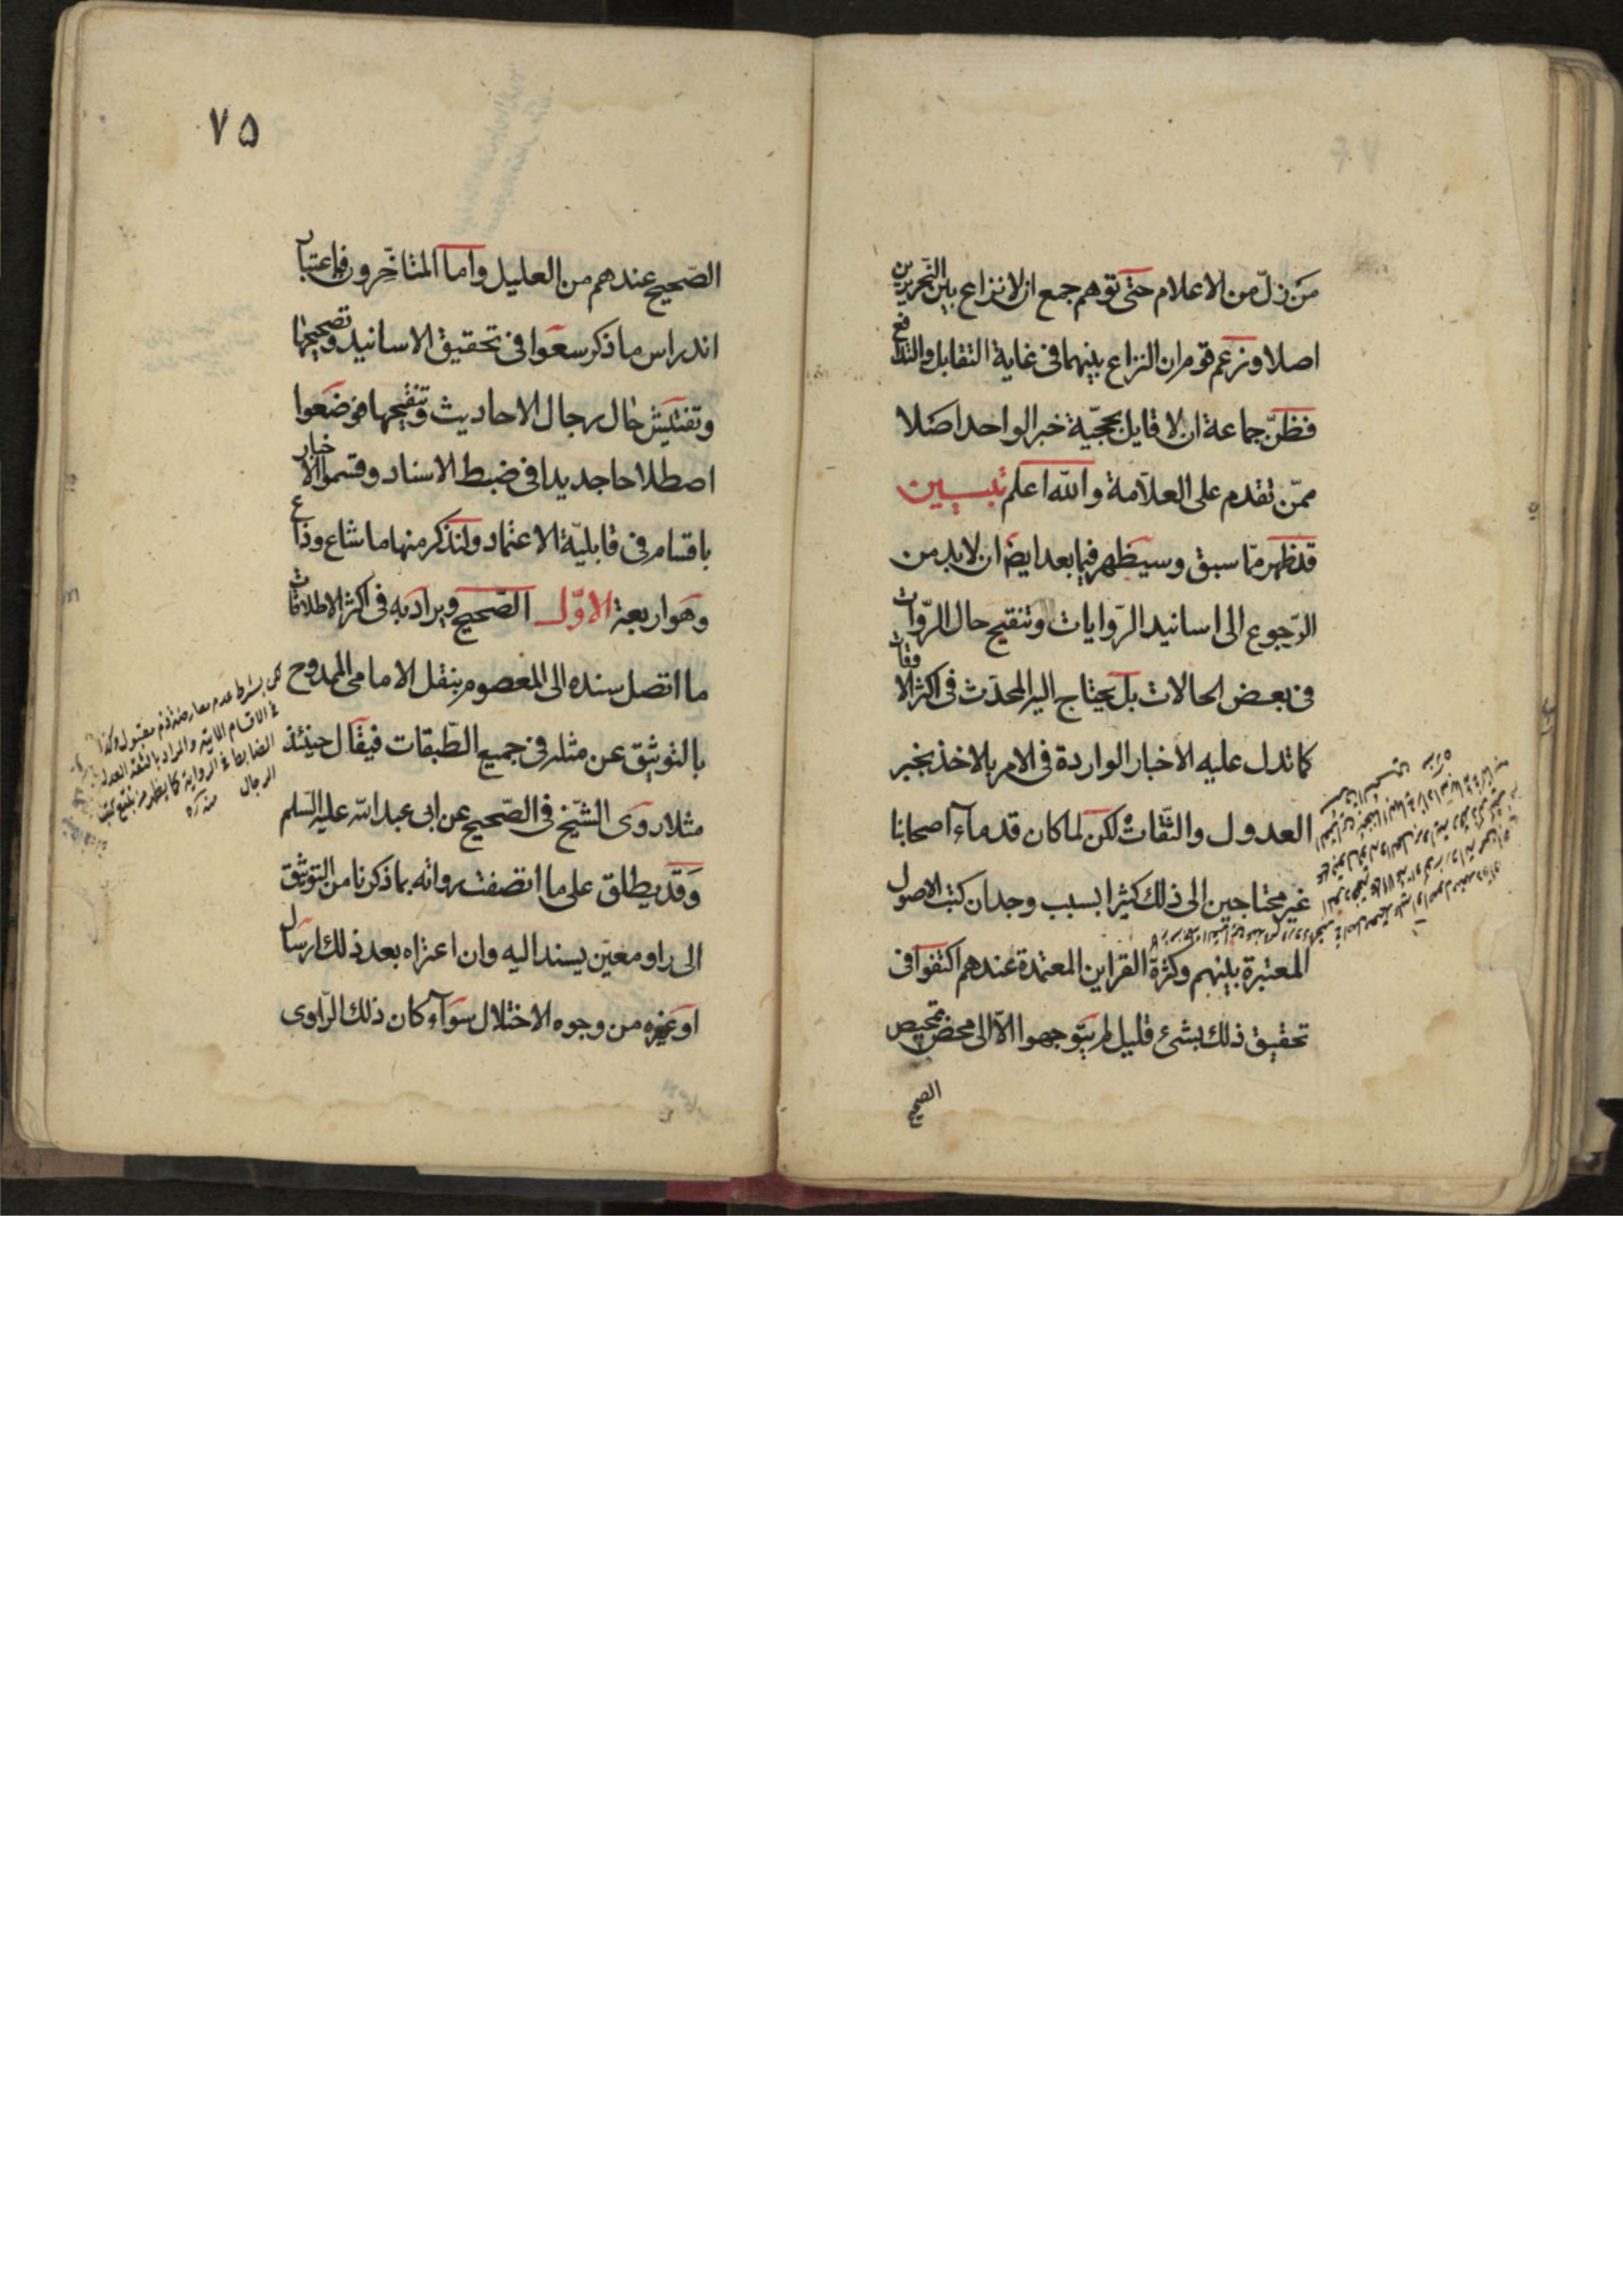 من زلّ من الاعلام حتى توهم جمع ان لا نزاع بين النحريرين
اصلا وزعم قوم ان النزاع بينهما فى غاية التقابل والتدافع
فظنّ جماعة ان لا قايل بحجيّة خبر الواحد اصلا
ممّن تقدم على العلاّمة والله اعلم تبيين
قد ظهر ممّا سبق وسيظهر فيما بعد ايضا ان لا بد من
الرّجوع الى اسانيد الرّوايات وتنقيح حال الرّوات
فى بعض الحالات بل يحتاج اليه المحدّث فى اكثر الاوقات
كما تدل عليه الاخبار الواردة فى الامر بالاخذ بخبر
العدول والثّقات لكن لما كان قدماء اصحابنا
غير محتاجين الى ذلك كثيرا بسبب وجدان كتب الاصول
المعتبرة بينهم وكثرة القراين المعتمدة عندهم اكتفوا فى
تحقيق ذلك بشئ قليل لم يتوجهوا الاّ الى محض تمحيص
الصحيح
٧٥
الصّحيح عندهم من العليل واما المتاخّرون فباعتبار
اندراس ما ذكر سعوا فى تحقيق الاسانيد وتصحيحها
وتفتيش حال رجال الاحاديث وتنقيحها فوضعوا
اصطلاحا جديدا فى ضبط الاسناد وقسموا الاخبار
باقسام فى قابليّة الاعتماد ولنذكر منها ما شاع وذاع
وهو اربعة الاوّل الصّحيح ويراد به فى اكثر الاطلاقات
ما اتصل سنده الى المعصوم بنقل الامامى الممدوح
بالتوثيق عن مثله فى جميع الطّبقات فيقال حينئذ
مثلا روى الشّيخ فى الصّحيح عن ابى عبد الله عليه السّلم
وقد يطلق على ما اتصفت رواته بما ذكرنا من التوثيق
الى راو معيّن يسند اليه وان اعتراه بعد ذلك ارسال
او غيره من وجوه الاختلال سواء كان ذلك الرّاوى
بشرط عدم معارضته ذم مقبول وكذا
فى الاقسام الاتية والمراد بالثقة العدل
الضابط فى الرواية كما يظهر من تتبع كتب
الرجال منه ره